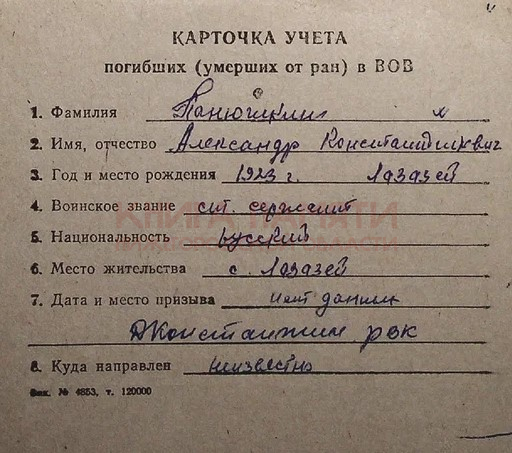 КАРТОЧКА УЧЕТА
погибших (умерших от ран) в ВОВ
1. Фамилия Панюшкин
2. Имя, отчество Александр Константинович
3. Год и место рождения 1923 г. Лазазей
4. Воинское звание ст. сержант
КНИГА ПАМЯТИ
5. Национальность русский
ОБЛАСТИ
6. Место жительства с. Лазазей
7. Дата и место призыва нет данных
Д Константин рвк
8. Куда направлен неизвестно
Зак. № 4853, т. 120000